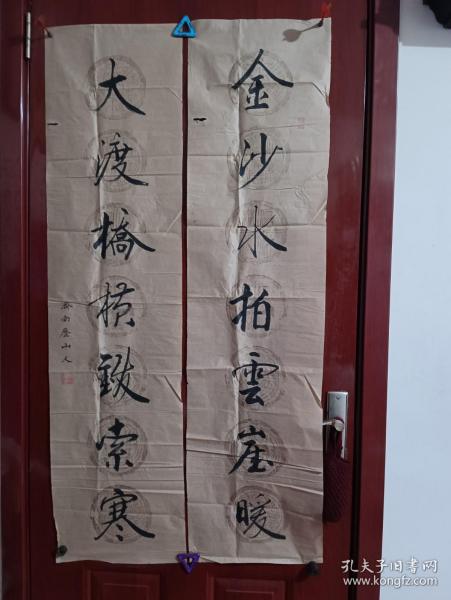 金沙水拍雲崖暖
大渡橋横鐵索寒
濟南歷山人
孔夫子旧书网
www.kongfz.com